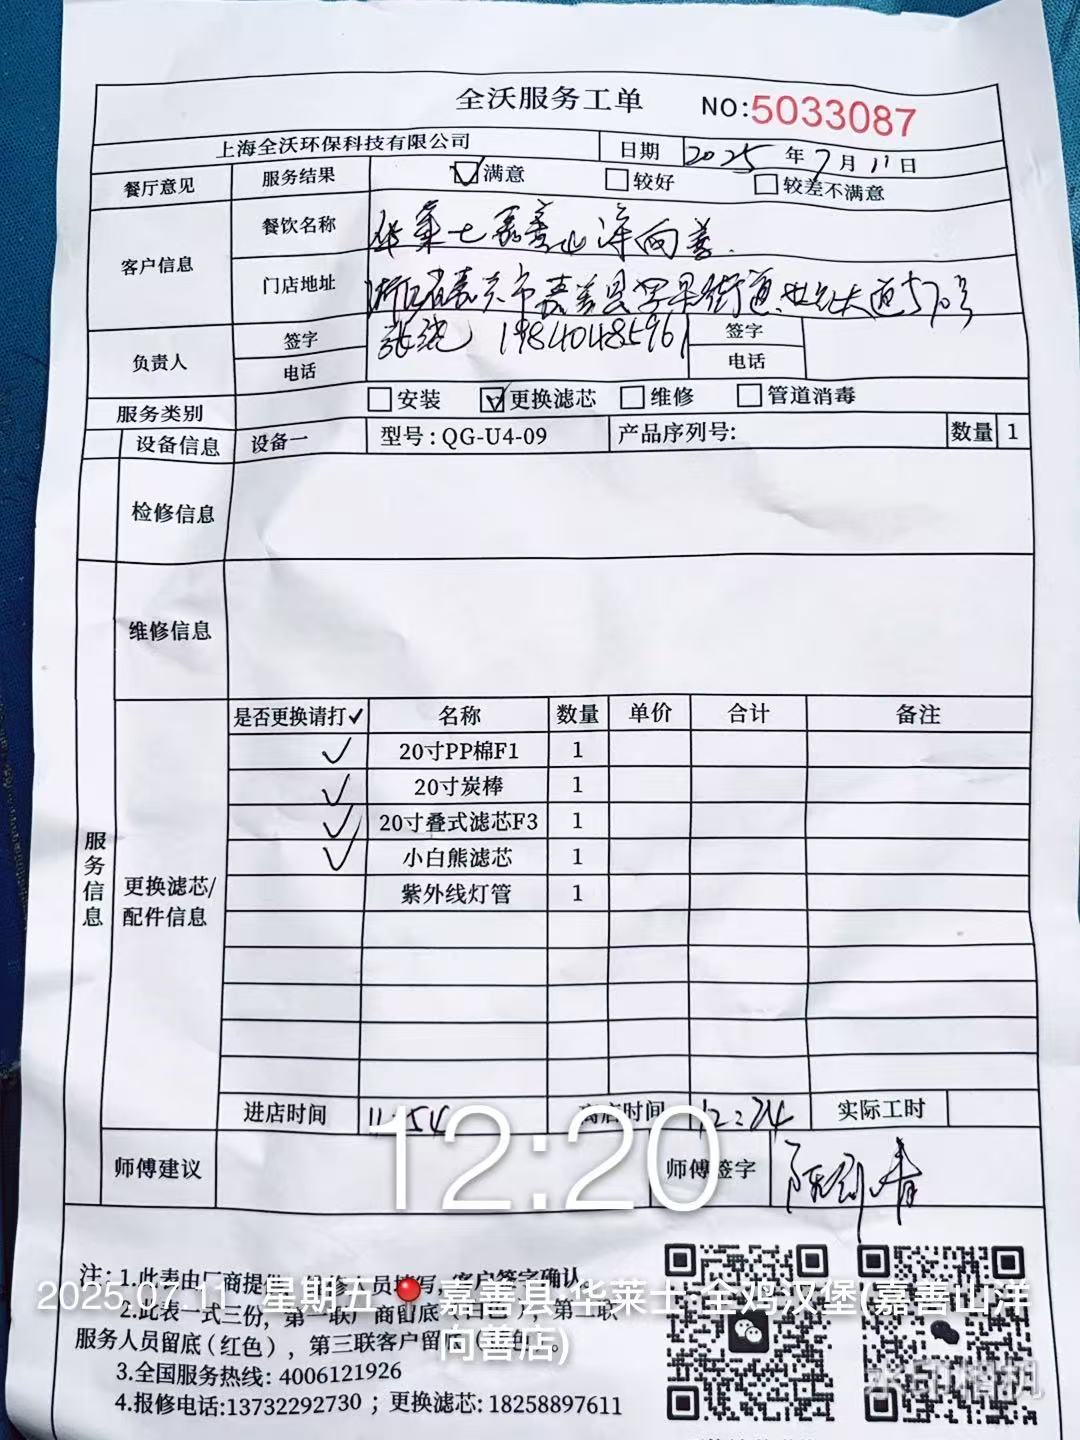 全沃服务工单 NO:5033087
上海全沃环保科技有限公司 日期 2025 年 7 月 11 日
餐厅意见 服务结果 满意 较好 较差不满意
客户信息 餐饮名称 华莱士嘉善山洋向善
门店地址 浙江省嘉兴市嘉善县罗星街道 大道570号
负责人 签字 张 签字
电话 19840485961 电话
服务类别 安装 更换滤芯 维修 管道消毒
设备信息 设备一 型号:QG-U4-09 产品序列号: 数量 1
检修信息
维修信息
服务信息
更换滤芯/
配件信息
是否更换请打✓ 名称 数量 单价 合计 备注
✓ 20寸PP棉F1 1
✓ 20寸炭棒 1
✓ 20寸叠式滤芯F3 1
✓ 小白熊滤芯 1
紫外线灯管 1
进店时间 11:54 离店时间 12:24 实际工时
师傅建议 师傅签字
12:20
注:1.此表由厂商提 员填写,客户签字确认。
2.此表一式三份,第一联厂商留底(白色),第二联
服务人员留底(红色),第三联客户留底
3.全国服务热线: 4006121926
4.报修电话:13732292730 ; 更换滤芯: 18258897611
2025.07.11 星期五 嘉善县·华莱士·全鸡汉堡(嘉善山洋
向善店)
水印相机